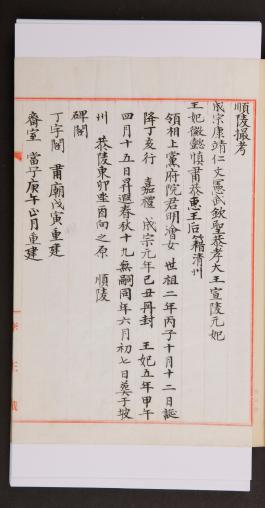 順陵撮考
成宗康靖仁文憲武欽聖恭孝大王宣陵元妃
王妃徽懿愼肅恭惠王后籍清州
領相上黨府院君明澮女 世祖二年丙子十月十二日誕
降丁亥行 嘉禮 成宗元年己丑冊封 王妃五年甲午
四月十五日昇遐春秋十九無嗣同年六月初七日葬于坡
州 恭陵東卯坐酉向之原 順陵
碑閣
丁字閣 肅廟戊寅重建
齋室 當宁庚午正月重建
李王職